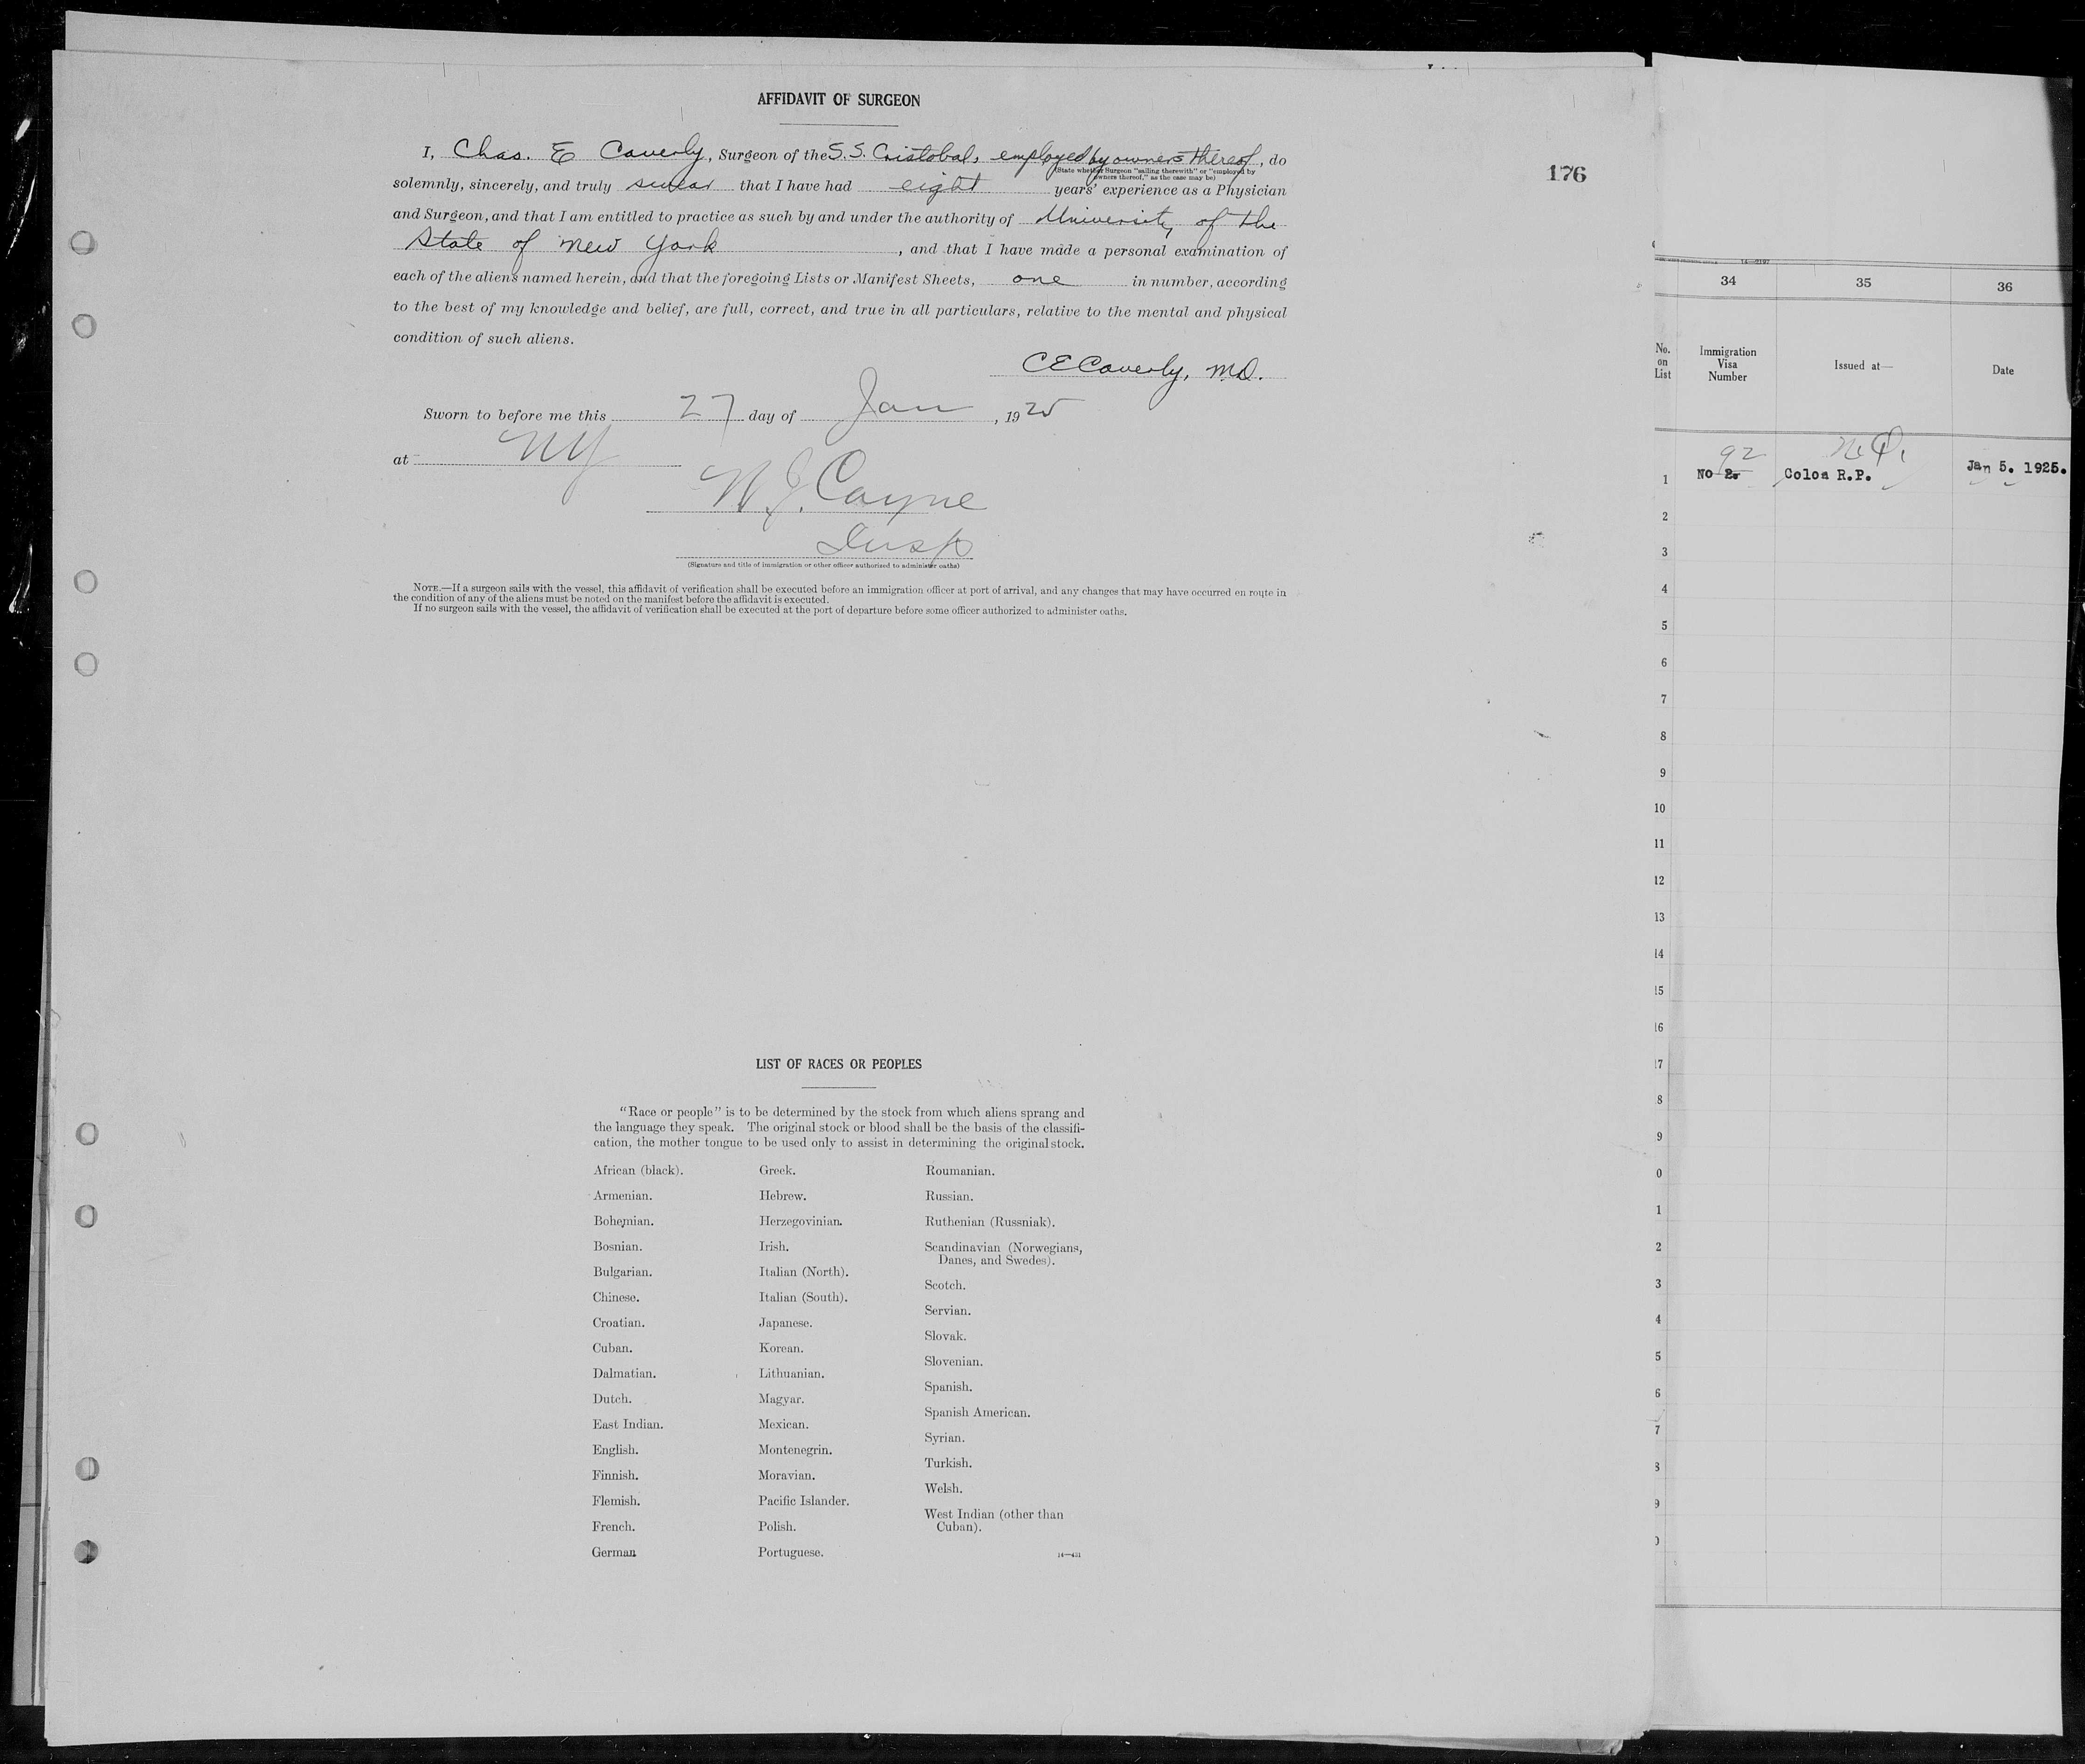 AFFIDAVIT OF SURGEON
I, Chas. E Caverly, Surgeon of the S.S. Cristobal, employed by owners thereof, do
(State whether Surgeon "sailing therewith" or "employed by
owners thereof," as the case may be)
solemnly, sincerely, and truly swear that I have had eight years' experience as a Physician
and Surgeon, and that I am entitled to practice as such by and under the authority of University of the
State of New York, and that I have made a personal examination of
each of the aliens named herein, and that the foregoing Lists or Manifest Sheets, one in number, according
to the best of my knowledge and belief, are full, correct, and true in all particulars, relative to the mental and physical
condition of such aliens.
C E Caverly, M.D.
Sworn to before me this 27 day of Jan, 1925
at NY
W J. Cayne
Insp
(Signature and title of immigration or other officer authorized to administer oaths)
NOTE.—If a surgeon sails with the vessel, this affidavit of verification shall be executed before an immigration officer at port of arrival, and any changes that may have occurred en route in
the condition of any of the aliens must be noted on the manifest before the affidavit is executed.
If no surgeon sails with the vessel, the affidavit of verification shall be executed at the port of departure before some officer authorized to administer oaths.
LIST OF RACES OR PEOPLES
"Race or people" is to be determined by the stock from which aliens sprang and
the language they speak. The original stock or blood shall be the basis of the classifi-
cation, the mother tongue to be used only to assist in determining the original stock.
African (black).
Armenian.
Bohemian.
Bosnian.
Bulgarian.
Chinese.
Croatian.
Cuban.
Dalmatian.
Dutch.
East Indian.
English.
Finnish.
Flemish.
French.
German
Greek.
Hebrew.
Herzegovinian.
Irish.
Italian (North).
Italian (South).
Japanese.
Korean.
Lithuanian.
Magyar.
Mexican.
Montenegrin.
Moravian.
Pacific Islander.
Polish.
Portuguese.
Roumanian.
Russian.
Ruthenian (Russniak).
Scandinavian (Norwegians,
Danes, and Swedes).
Scotch.
Servian.
Slovak.
Slovenian.
Spanish.
Spanish American.
Syrian.
Turkish.
Welsh.
West Indian (other than
Cuban).
14—431
176
14—2197
34 35 36
No.
on
List
Immigration
Visa
Number
Issued at—
Date
92
1 No 2. Colon R.P. Jan 5. 1925.
2
3
4
5
6
7
8
9
10
11
12
13
14
15
16
17
8
9
0
1
2
3
4
5
6
7
8
9
0